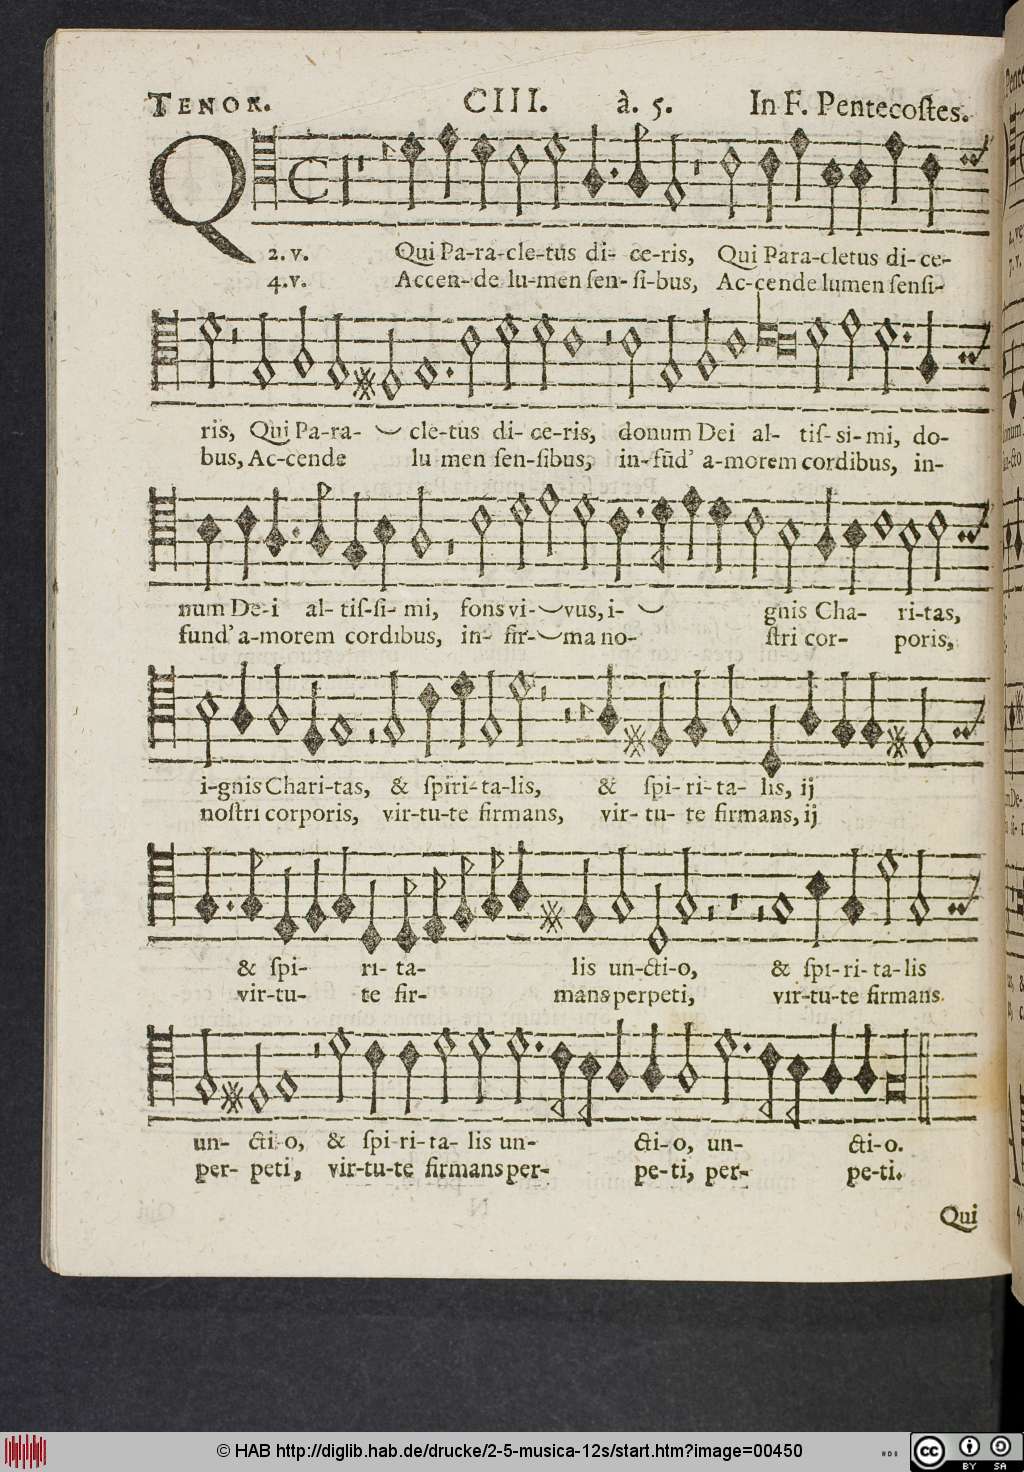 TENOR. CIII. à. 5. In F. Pentecoſtes.
Q
2. v. Qui Pa-ra-cle-tus di- ce-ris, Qui Para-cletus di-ce-
4. v. Accen-de lu-men ſen-ſi-bus, Ac-cende lumen ſenſi-
ris, Qui Pa-ra- cle-tus di- ce-ris, donum Dei al- tiſ- si- mi, do-
bus, Ac-cende lu men ſen-ſibus, in-fūd' a-morem cordibus, in-
num De-i al- tiſ-ſi- mi, fons vi- vus, i- gnis Cha- ri-tas,
fund' a-morem cordibus, in- fir- ma no- ſtri cor- poris,
i-gnis Chari-tas, & ſpiri-ta-lis, & ſpi- ri- ta- lis, ij
noſtri corporis, vir-tu-te firmans, vir- tu- te firmans, ij
& ſpi- ri- ta- lis un-cti-o, & ſpi-ri-ta-lis
vir-tu- te fir- mans perpeti, vir-tu-te firmans
un- cti-o, & ſpi-ri-ta- lis un- cti-o, un- cti-o.
per- peti, vir-tu-te firmans per- pe-ti, per- pe-ti.
Qui
© HAB http://diglib.hab.de/drucke/2-5-musica-12s/start.htm?image=00450
cc BY SA